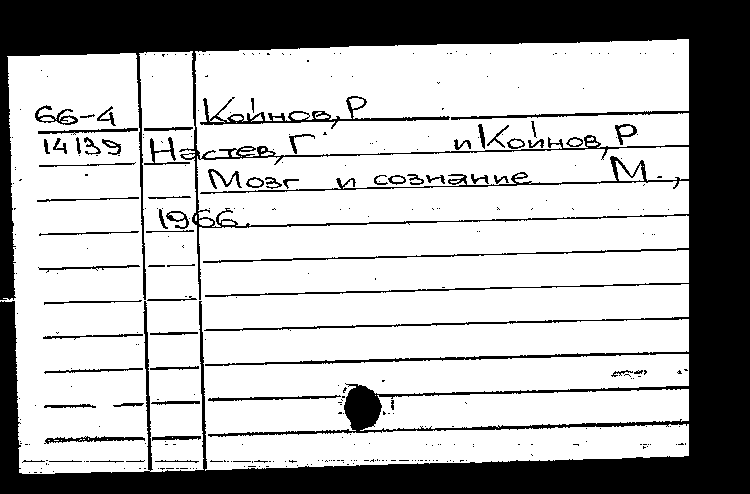 66-4 Койнов, Р
14139 Настев, Г. и Койнов, Р
Мозг и сознание М.,
1966.